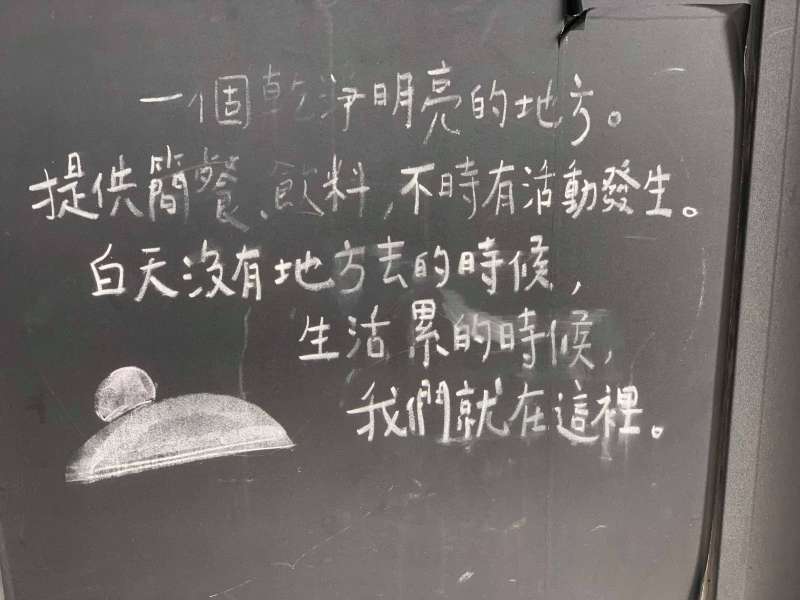 一個乾淨明亮的地方。
提供簡餐、飲料,不時有活動發生。
白天沒有地方去的時候,
生活累的時候,
我們就在這裡。